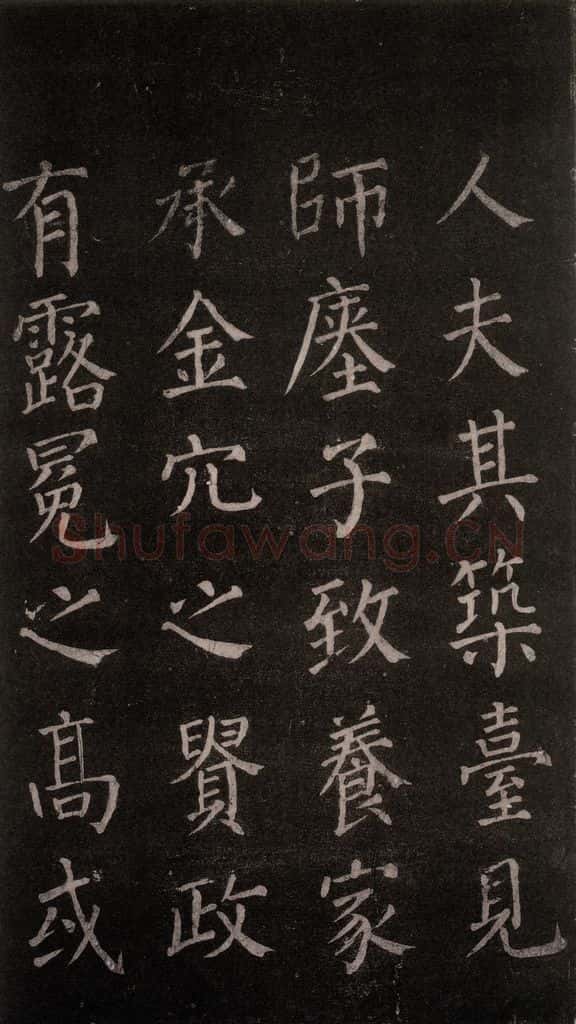 人夫其築臺見
師塵子致養家
承金穴之賢政
有露冕之高或
Shufawang.CN